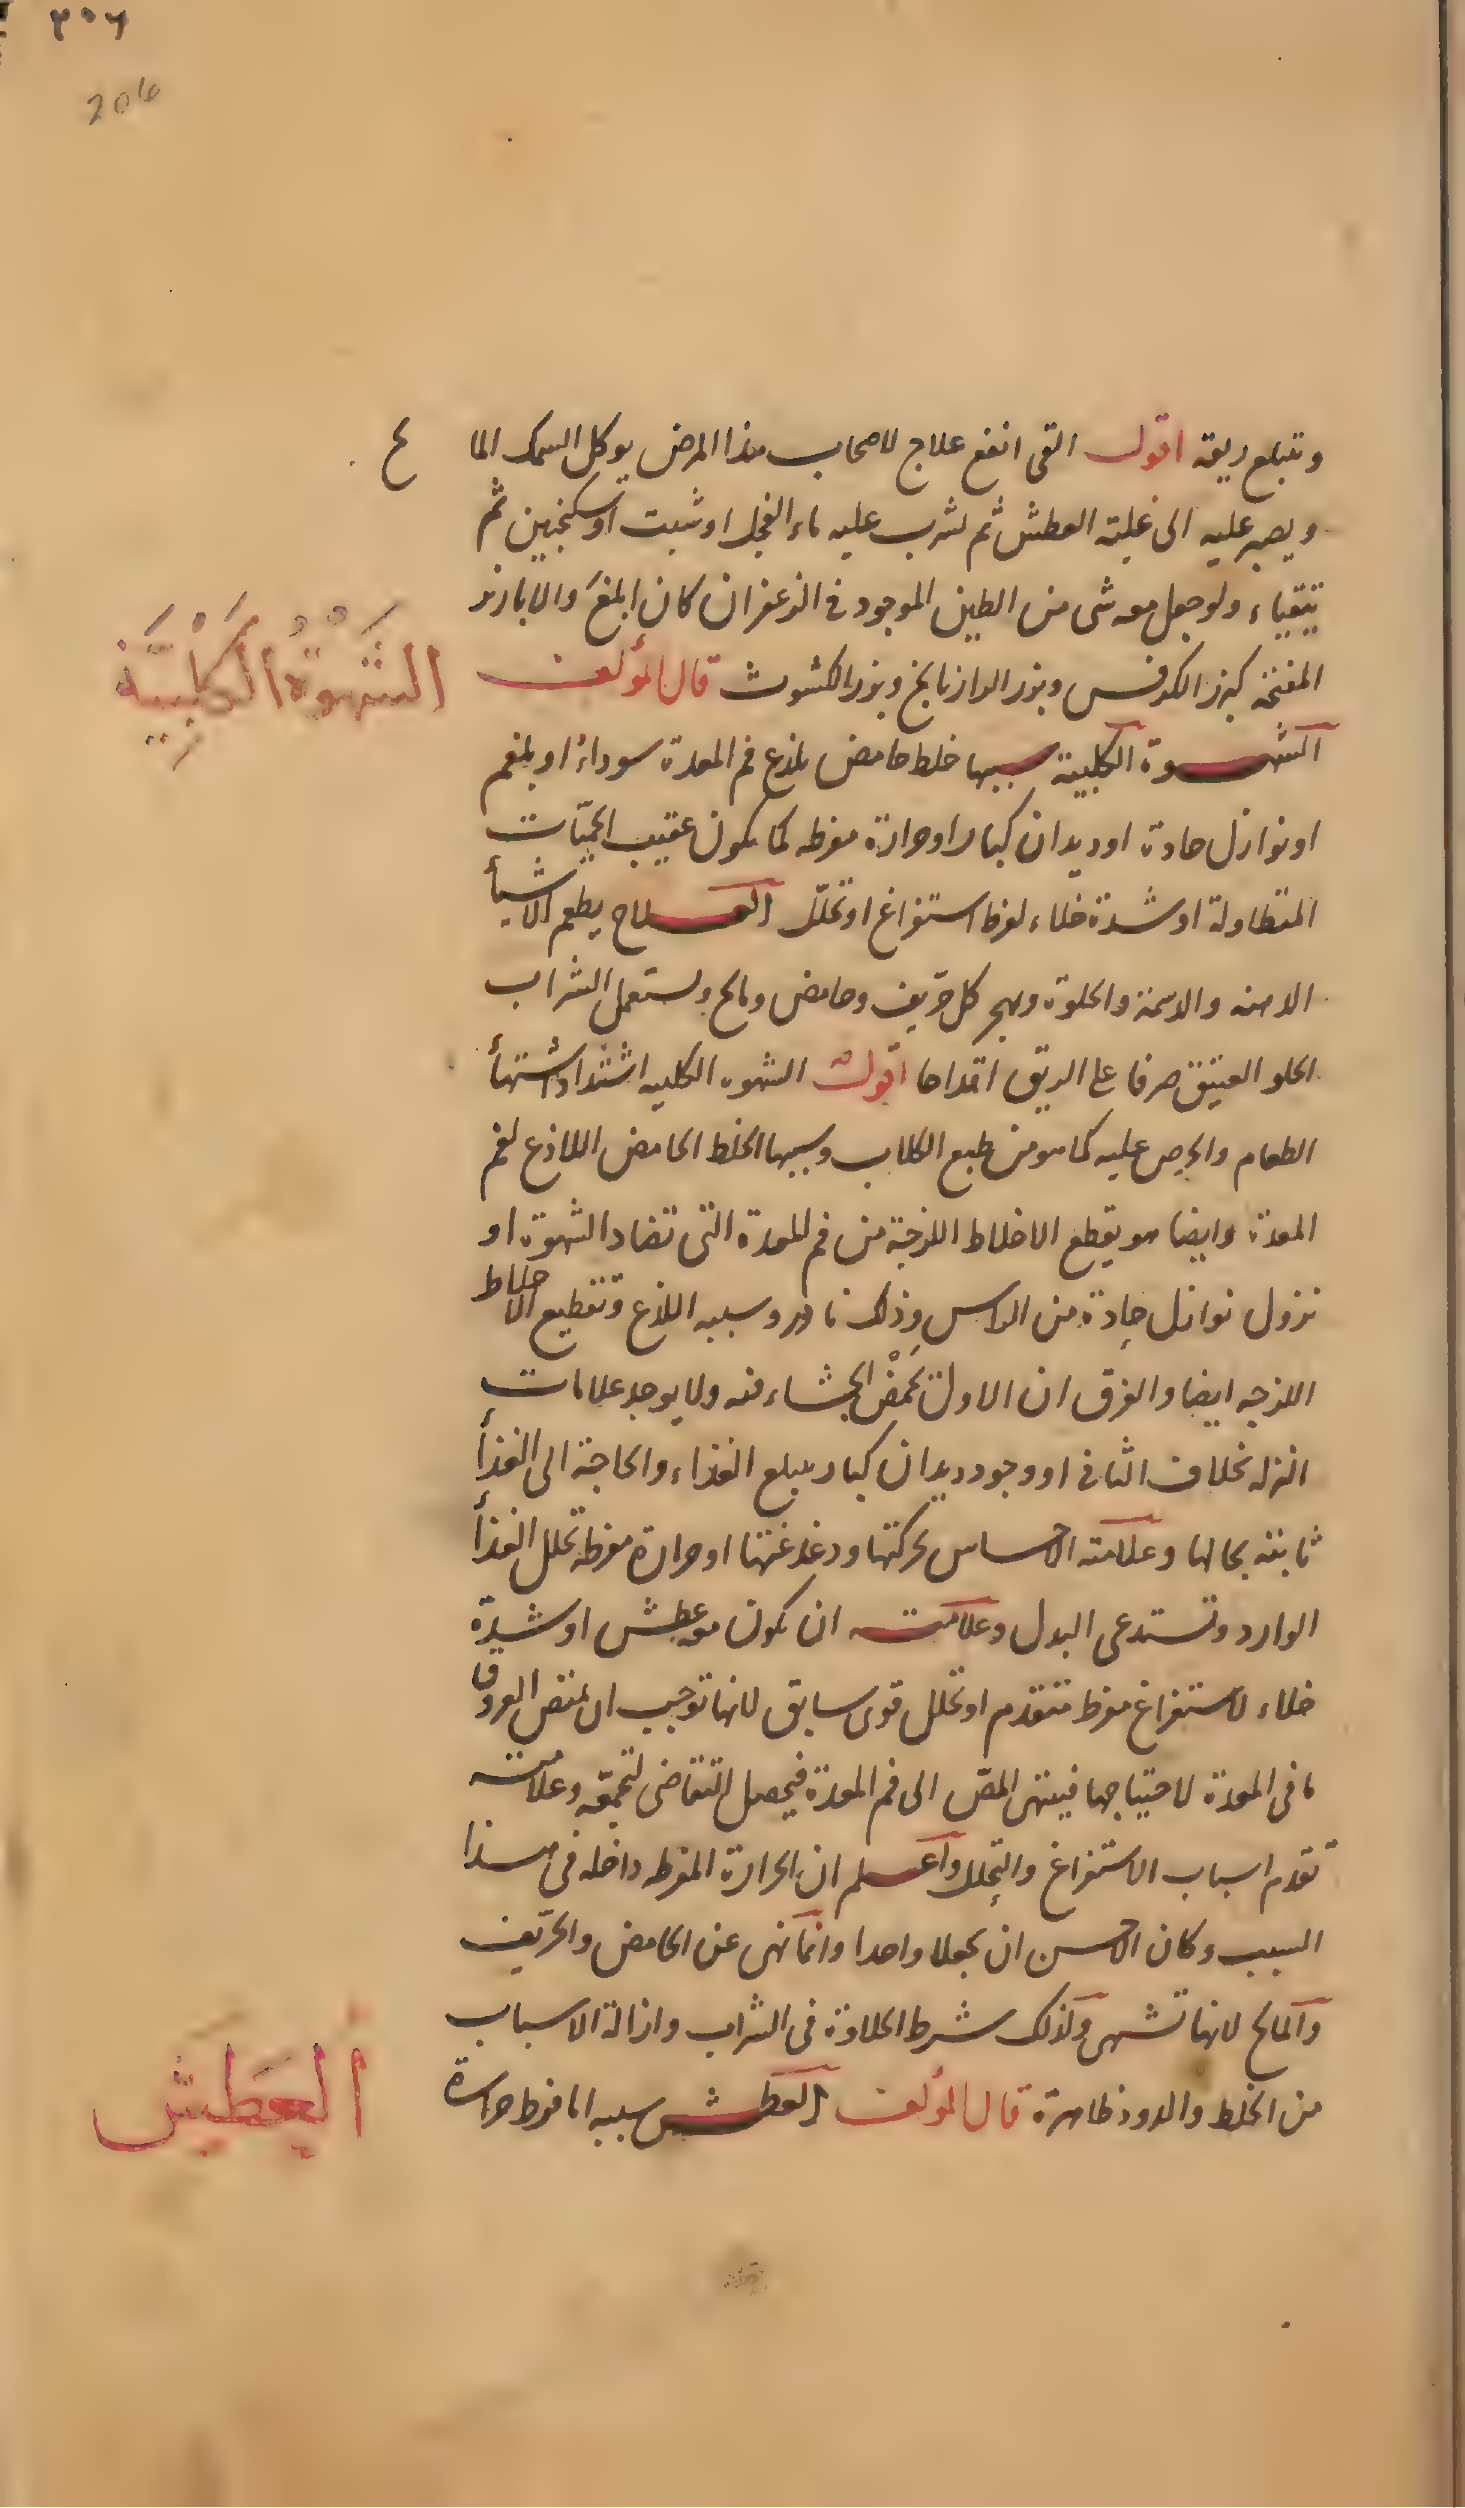 ٢٠٦
206
وتبلع ريقه اقول القى انفع علاج لاصحاب هذا المرض يوكل السمك المالح
ويصبر عليه الى غلبة العطش ثم لشرب عليه ماء الفجل او شبت او سكنجبين ثم
يتقياء ولو جعل معه شى من الطين الموجود فى الزعفران كان ابلغ والابازير
المفتحة كبزر الكرفس وبزر الرازيانج وبزر الكشوث قال المؤلف
الشَّهْوَةُ الْكَلْبِيَّة
الشهوة الكلبية سببها خلط حامض يلذع فم المعدة سوداء او بلغم
او نوازل حادة او ديدان كبار او حرارة مفرطه كما يكون عقيب الحميّات
المتطاولة او شدة خلاء لفرط استفراغ او تحلّل العلاج يطعم الاشيأ
الدهنه والدسمة والحلوة ويهجر كل حرّيف وحامض ومالح ويستعمل الشراب
الحلو العتيق صرفا على الريق اقداحا اقول الشهوه الكلبيه اشتداد اشتهأ
الطعام والحرص عليه كما هو من طبع الكلاب وسببها الخلط الحامض اللاذع لفم
المعدة وايضا هو يقطع الاخلاط اللزجة من فم المعدة التى تضاد الشهوة او
نزول نوازل حادة من الراس وذلك نادر وسببه اللذع وتقطيع الاخلاط
اللزجه ايضا والفرق ان الاول يَحمُضْ الجشاء فيه ولا يوجد علامات
النزله بخلاف الثانى او وجود ديدان كبار يبلع الغذاء والحاجة الى الغذأ
ثابتة بحالها وعلامته الاحساس بحركتها ودغدغتها او حرارة مفرطه تحلل الغذأ
الوارد وتستدعى البدل وعلامته ان يكون معه عطش او شدّة
خلاء لاستفراغ مفرط متقدم او تحلل قوى سابق لانها توجب ان تمتص العروق
ما فى المعدة لاحتياجها فينتهى المصّ الى فم المعدة فيحصل التقاضى لتجمّعه وعلامته
تقدم اسباب الاستفراغ والتحلل واعلم ان الحرارة المفرطه داخله فى هذا
السبب وكان الاحسن ان يجعلا واحدا وانما نهى عن الحامض والحرّيف
والمالح لانها تشهى وكذلك شرط الحلاوة فى الشراب وازالة الاسباب
من الخلط والدود ظاهرة قال المؤلف العطش سببه اما فرط حرارة
العَطَش